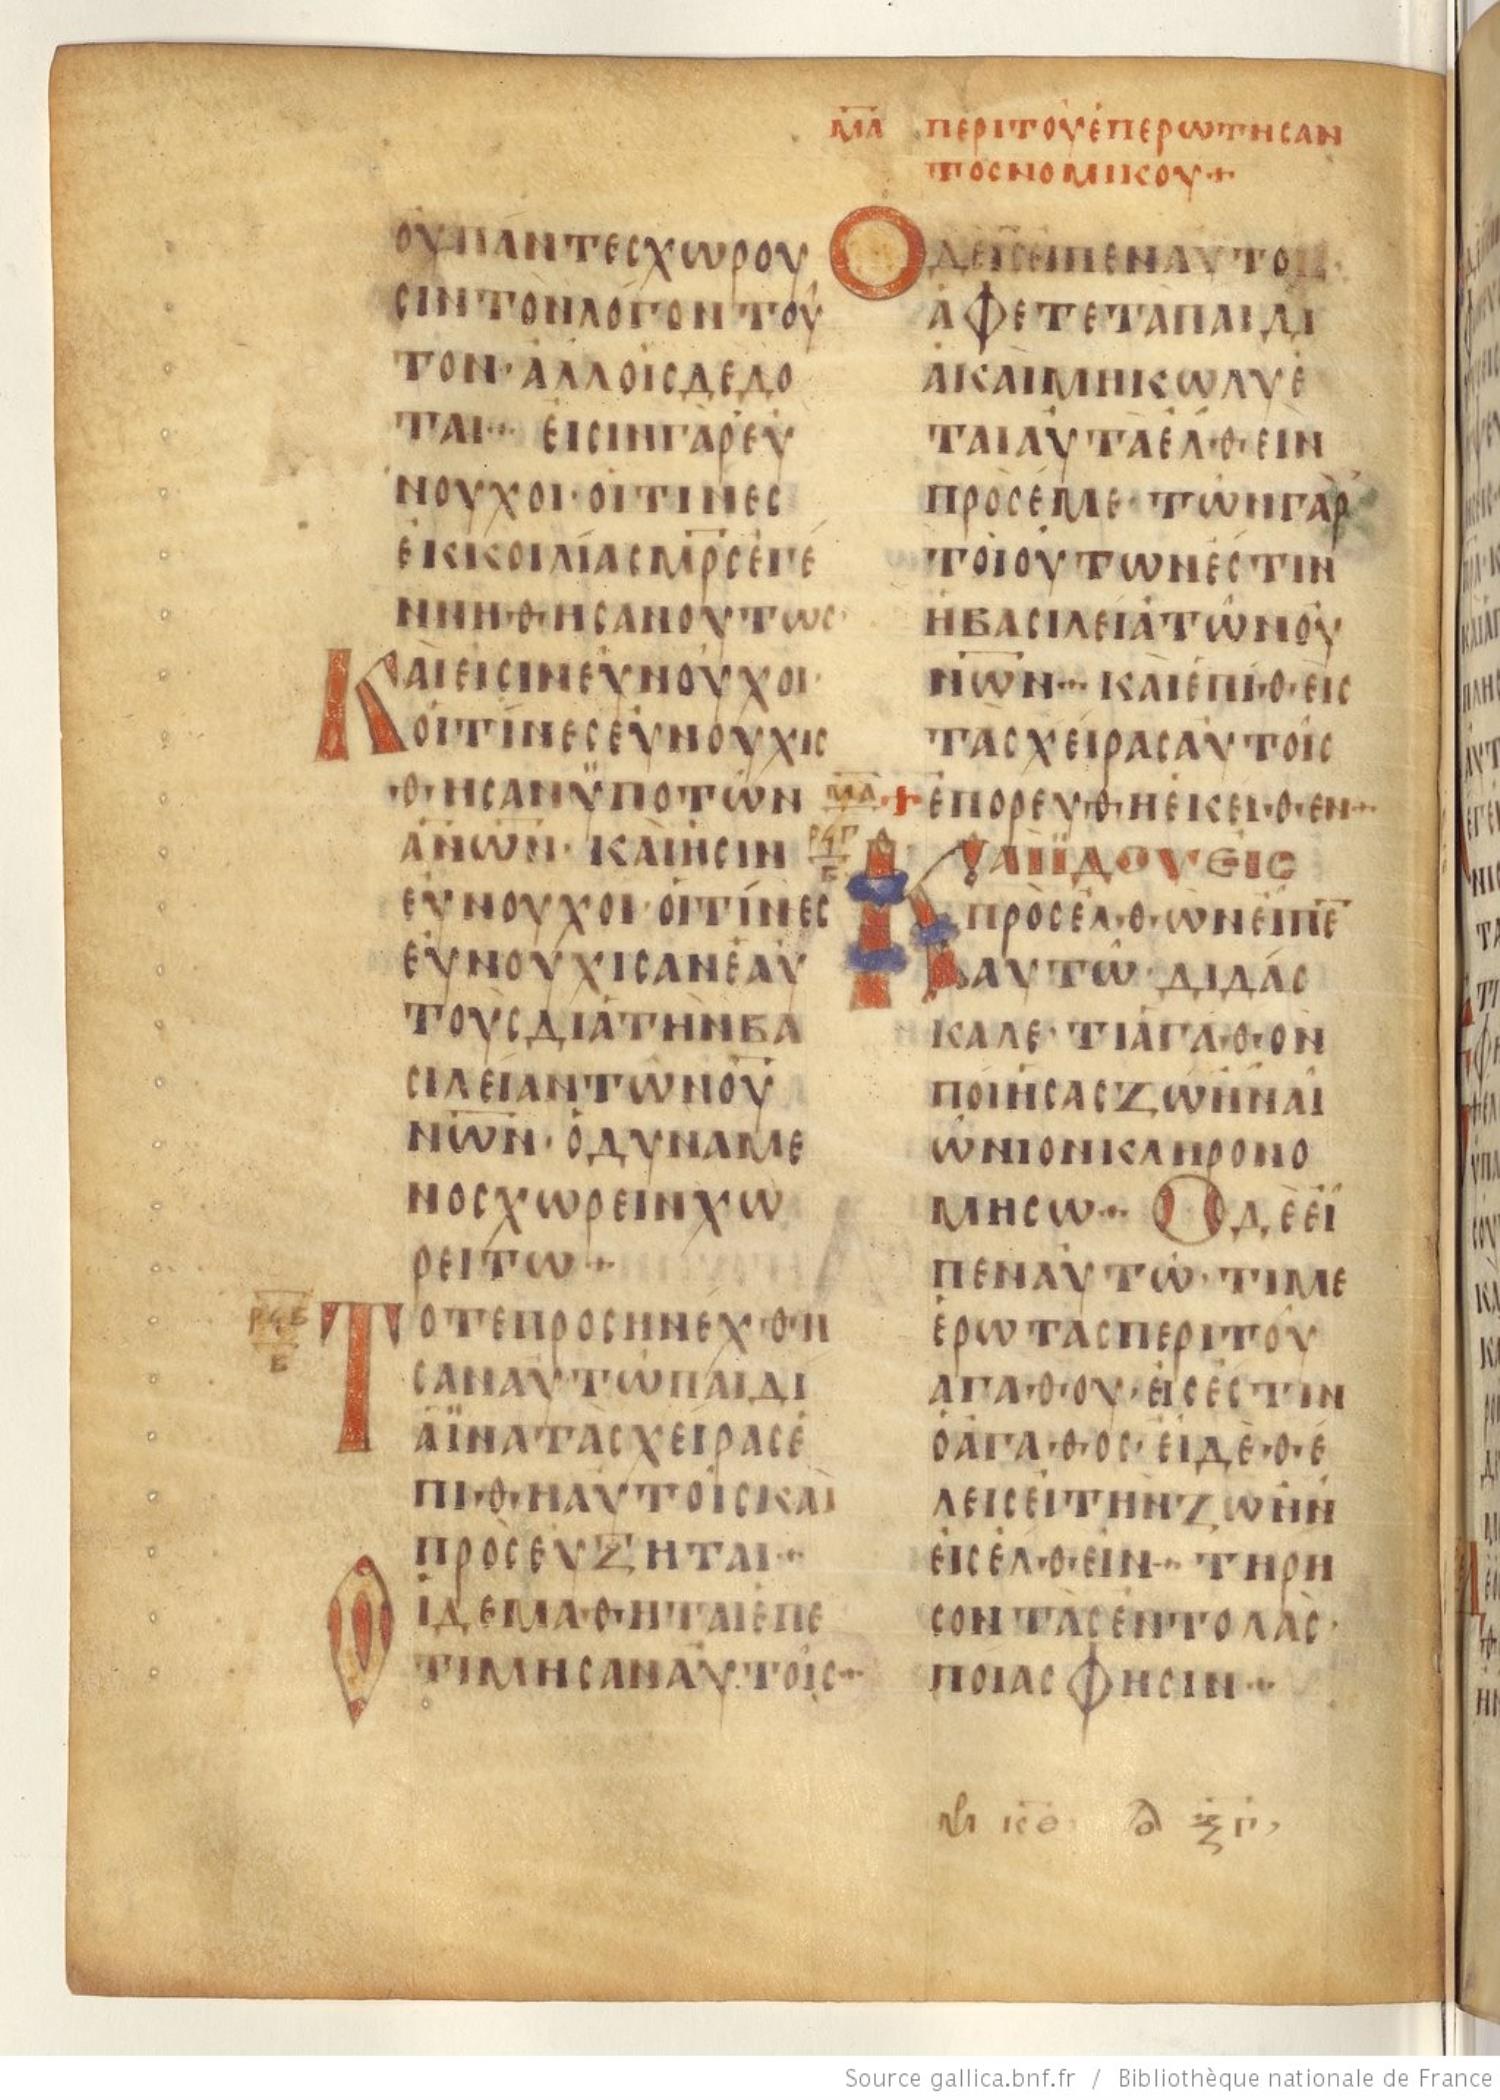 ΜΑ ΠΕΡΙΤΟΥΕΠΕΡΩΤΗСΑΝ
ΤΟСΝΟΜΙΚΟΥ+
ΟΥΠΑΝΤΕСΧΩΡΟΥ
СΙΝΤΟΝΛΟΓΟΝΤΟΥ
ΤΟΝ·ΑΛΛΟΙСΔΕΔΟ
ΤΑΙ·ΕΙСΙΝΓΑΡΕΥ
ΝΟΥΧΟΙ·ΟΙΤΙΝΕС
ΕΚΚΟΙΛΙΑСΜΡ̅СΕΓΕ
ΝΝΗΘΗСΑΝΟΥΤΩС·
ΚΑΙΕΙСΙΝΕΥΝΟΥΧΟΙ·
ΟΙΤΙΝΕСΕΥΝΟΥΧΙС
ΘΗСΑΝΫΠΟΤΩΝ
ΑΝ̅Ω̅Ν̅·ΚΑΙΗСΙΝ
ΕΥΝΟΥΧΟΙ·ΟΙΤΙΝΕС
ΕΥΝΟΥΧΙСΑΝΕΑΥ
ΤΟΥСΔΙΑΤΗΝΒΑ
СΙΛΕΙΑΝΤΩΝΟΥ̅
Ν̅Ω̅Ν·ΟΔΥΝΑΜΕ
ΝΟСΧΩΡΕΙΝΧΩ
ΡΕΙΤΩ+
ΡϞΒ
Β
ΤΟΤΕΠΡΟСΗΝΕΧΘΗ
СΑΝΑΥΤΩΠΑΙΔΙ
ΑΪΝΑΤΑСΧΕΙΡΑСΕ
ΠΙΘΗΑΥΤΟΙСΚΑΙ
ΠΡΟСΕΥΞΗΤΑΙ·
ΟΙΔΕΜΑΘΗΤΑΙΕΠΕ
ΤΙΜΗСΑΝΑΥΤΟΙС+
ΟΔΕΙ̅С̅ΕΙΠΕΝΑΥΤΟΙС·
ΑΦΕΤΕΤΑΠΑΙΔΙ
ΑΚΑΙΜΗΚΩΛΥΕ
ΤΑΙΑΥΤΑΕΛΘΕΙΝ
ΠΡΟСΕΜΕ·ΤΩΝΓΑΡ
ΤΟΙΟΥΤΩΝΕСΤΙΝ
ΗΒΑСΙΛΕΙΑΤΩΝΟΥ̅
Ν̅Ω̅Ν+ΚΑΙΕΠΙΘΕΙС
ΤΑСΧΕΙΡΑСΑΥΤΟΙС
ΜΑ +ΕΠΟΡΕΥΘΗΕΚΕΙΘΕΝ+
ΡϞΓ
Β
ΚΑΙΪΔΟΥΕΙС
ΠΡΟСΕΛΘΩΝΕΙΠΕ̅
ΑΥΤΩ·ΔΙΔΑС
ΚΑΛΕ·ΤΙΑΓΑΘΟΝ
ΠΟΙΗСΑСΖΩΗΝΑΙ
ΩΝΙΟΝΚΛΗΡΟΝΟ
ΜΗСΩ+ΟΔΕΕΙ
ΠΕΝΑΥΤΩ·ΤΙΜΕ
ΕΡΩΤΑСΠΕΡΙΤΟΥ
ΑΓΑΘΟΥ·ΕΙСΕСΤΙΝ
ΟΑΓΑΘΟС·ΕΙΔΕΘΕ
ΛΕΙСΕΙΤΗΝΖΩΗΝ
ΕΙСΕΛΘΕΙΝ+ΤΗΡΗ
СΟΝΤΑСΕΝΤΟΛΑС·
ΠΟΙΑСΦΗСΙΝ+
Source gallica.bnf.fr / Bibliothèque nationale de France